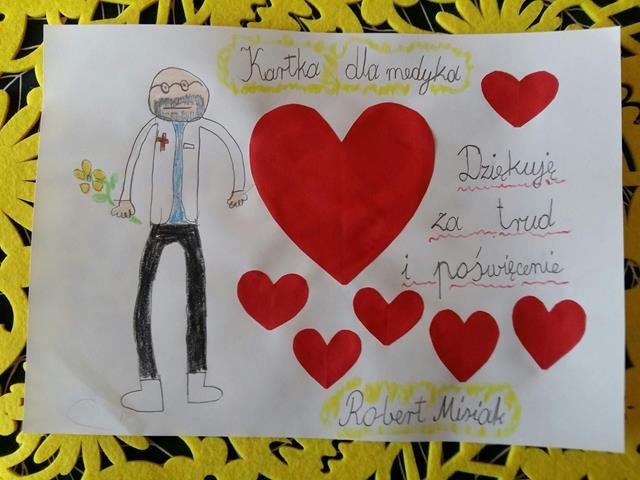 Kartka dla medyka
Dziękuję
za trud
i poświęcenie
Robert Misiak